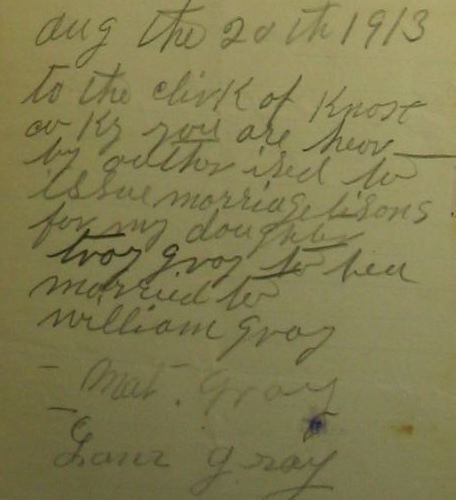 aug the 20th 1913
to the clirk of Knox
co Ky you are heor
by author ised to
issue morriage lisons
for my doughter
troy gray to bea
married to
william gray
- Mat. Gray
- gray